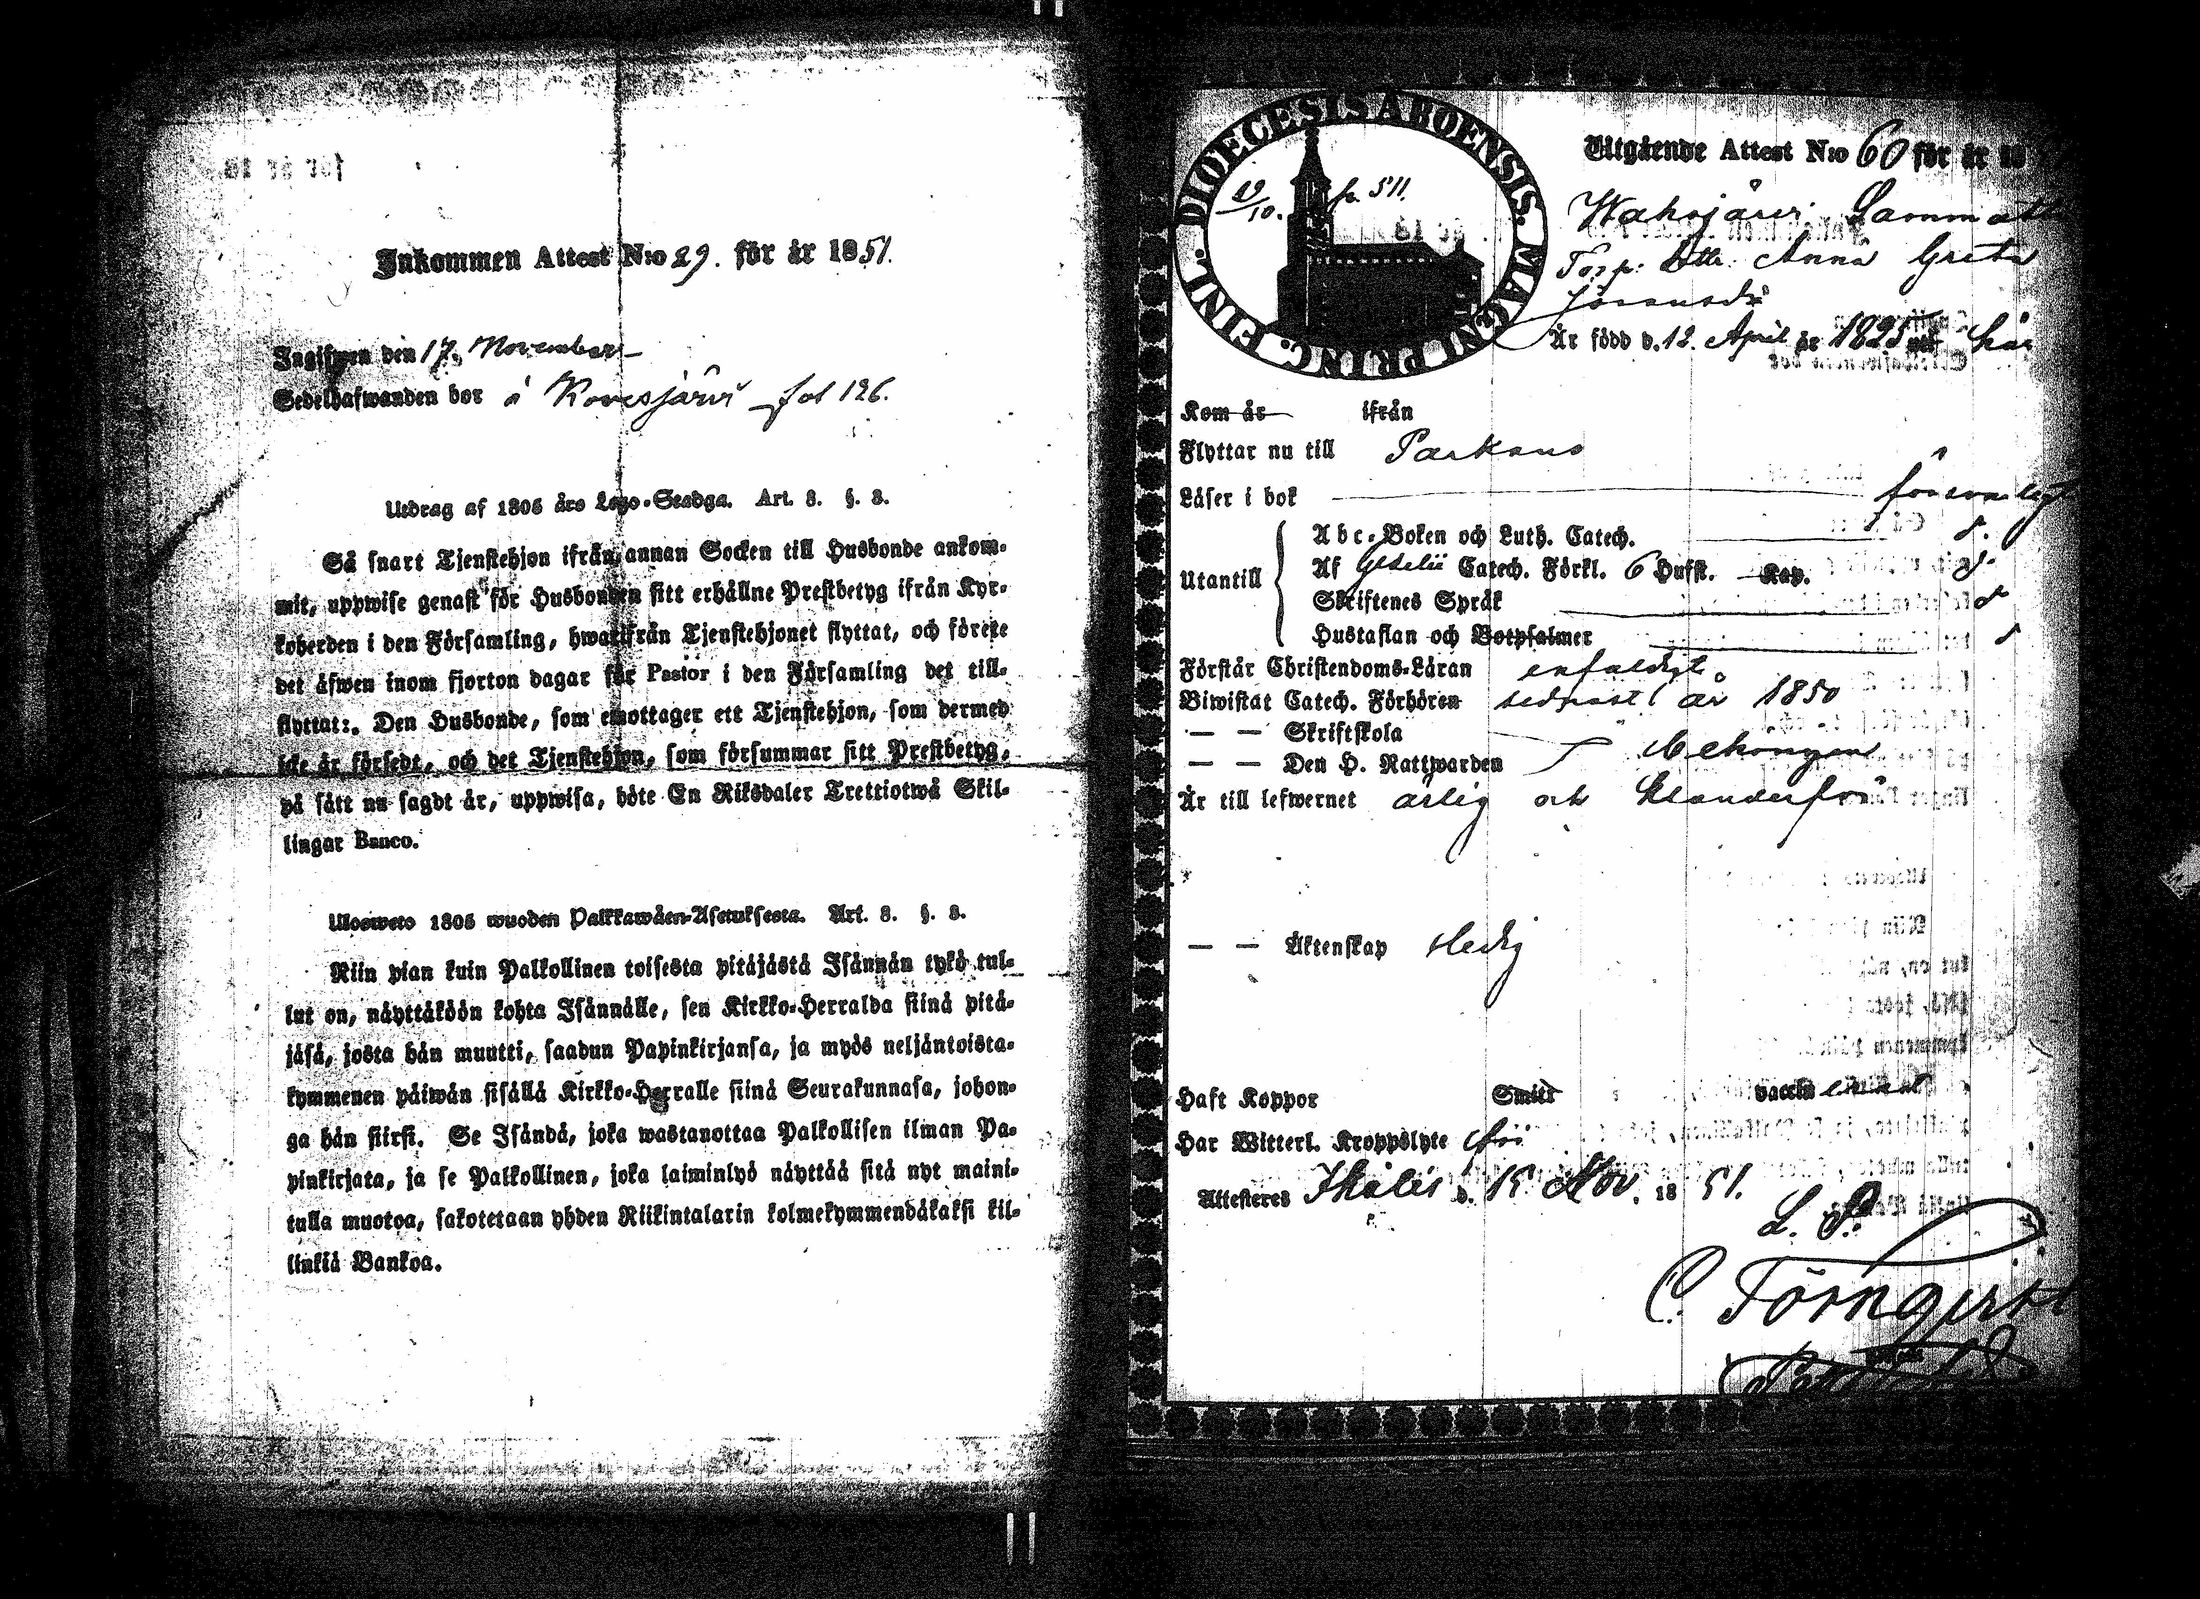 Inkommen Attest N:o 29. för år 1851.
Ingifwen den 17. November
Sedelhafwanden bor i Kovesjärvi fol 126.
Utdrag af 1805 års Lego-Stadga. Art. 3. §. 3.
Så snart Tjenstehjon ifrån annan Socken till Husbonde ankom-
mit, uppwise genast för Husbonden sitt erhållne Prestbetyg ifrån Kyr-
koherden i den Församling, hwarifrån Tjenstehjonet flyttat, och förete
det äfwen inom fjorton dagar för Pastor i den Församling det till-
flyttat:. Den Husbonde, som emottager ett Tjenstehjon, som dermed
icke är försedt, och det Tjenstehjon, som försummar sitt Prestbetyg,
på sätt nu sagdt är, uppwisa, böte En Riksdaler Trettiotwå Skil-
lingar Banco.
Ulosweto 1805 wuoden Palkkawäen-Asetuksesta. Art. 3. §. 3.
Niin pian kuin Palkollinen toisesta pitäjästä Isännän tykö tul-
lut on, näyttäköön kohta Isännälle, sen Kirkko-Herralda siinä pitä-
jäsä, josta hän muutti, saadun Papinkirjansa, ja myös neljäntoista-
kymmenen päiwän sisällä Kirkko-Herralle siinä Seurakunnasa, johon-
ga hän siirsi. Se Isändä, joka wastanottaa Palkollisen ilman Pa-
pinkirjata, ja se Palkollinen, joka laiminlyö näyttää sitä nyt maini-
tulla muotoa, sakotetaan yhden Riikintalarin kolmekymmendäkaksi kil-
linkiä Bankoa.
DIOECESIS ABOENSIS. MAGNI PRINC. FINL.
29/10. p. 511.
Utgående Attest N:o 60 för år 18
Wahojärvi
Torp: Dttr: Anna Greta
Är född d. 12. April år 1825 här
Kom år ifrån
Flyttar nu till Parkano
Läser i bok försvarligt
Utantill
Abc-Boken och Luth. Catech.
Af Catech. Förkl. 6 Hufst. Kap.
Skriftenes Språk
Hustaflan och Botpsalmer
Förstår Christendoms-Läran enfaldigt
Biwistat Catech. Förhören sednast år 1850
— — Skriftskola
— — Den H. Nattwarden behörigen
Är till lefwernet ärlig och klanderfri
— — Äktenskap ledig
Haft Koppor Smitt vaccin
Har Witterl. Kroppslyte fri
Attesteras Ikalis d. 15 Nov. 18 51.
L. S.
C. Törnqvist